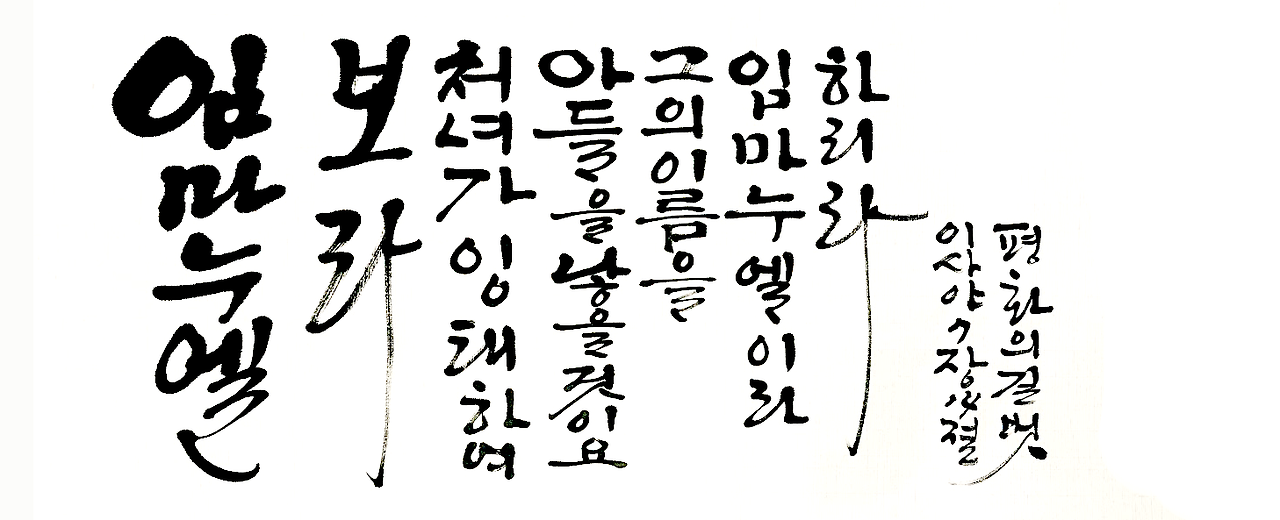 임마누엘
보라
처녀가 잉태하여
아들을낳을것이요
그의이름을
임마누엘이라
하리라
이사야7장14절
평화의길벗